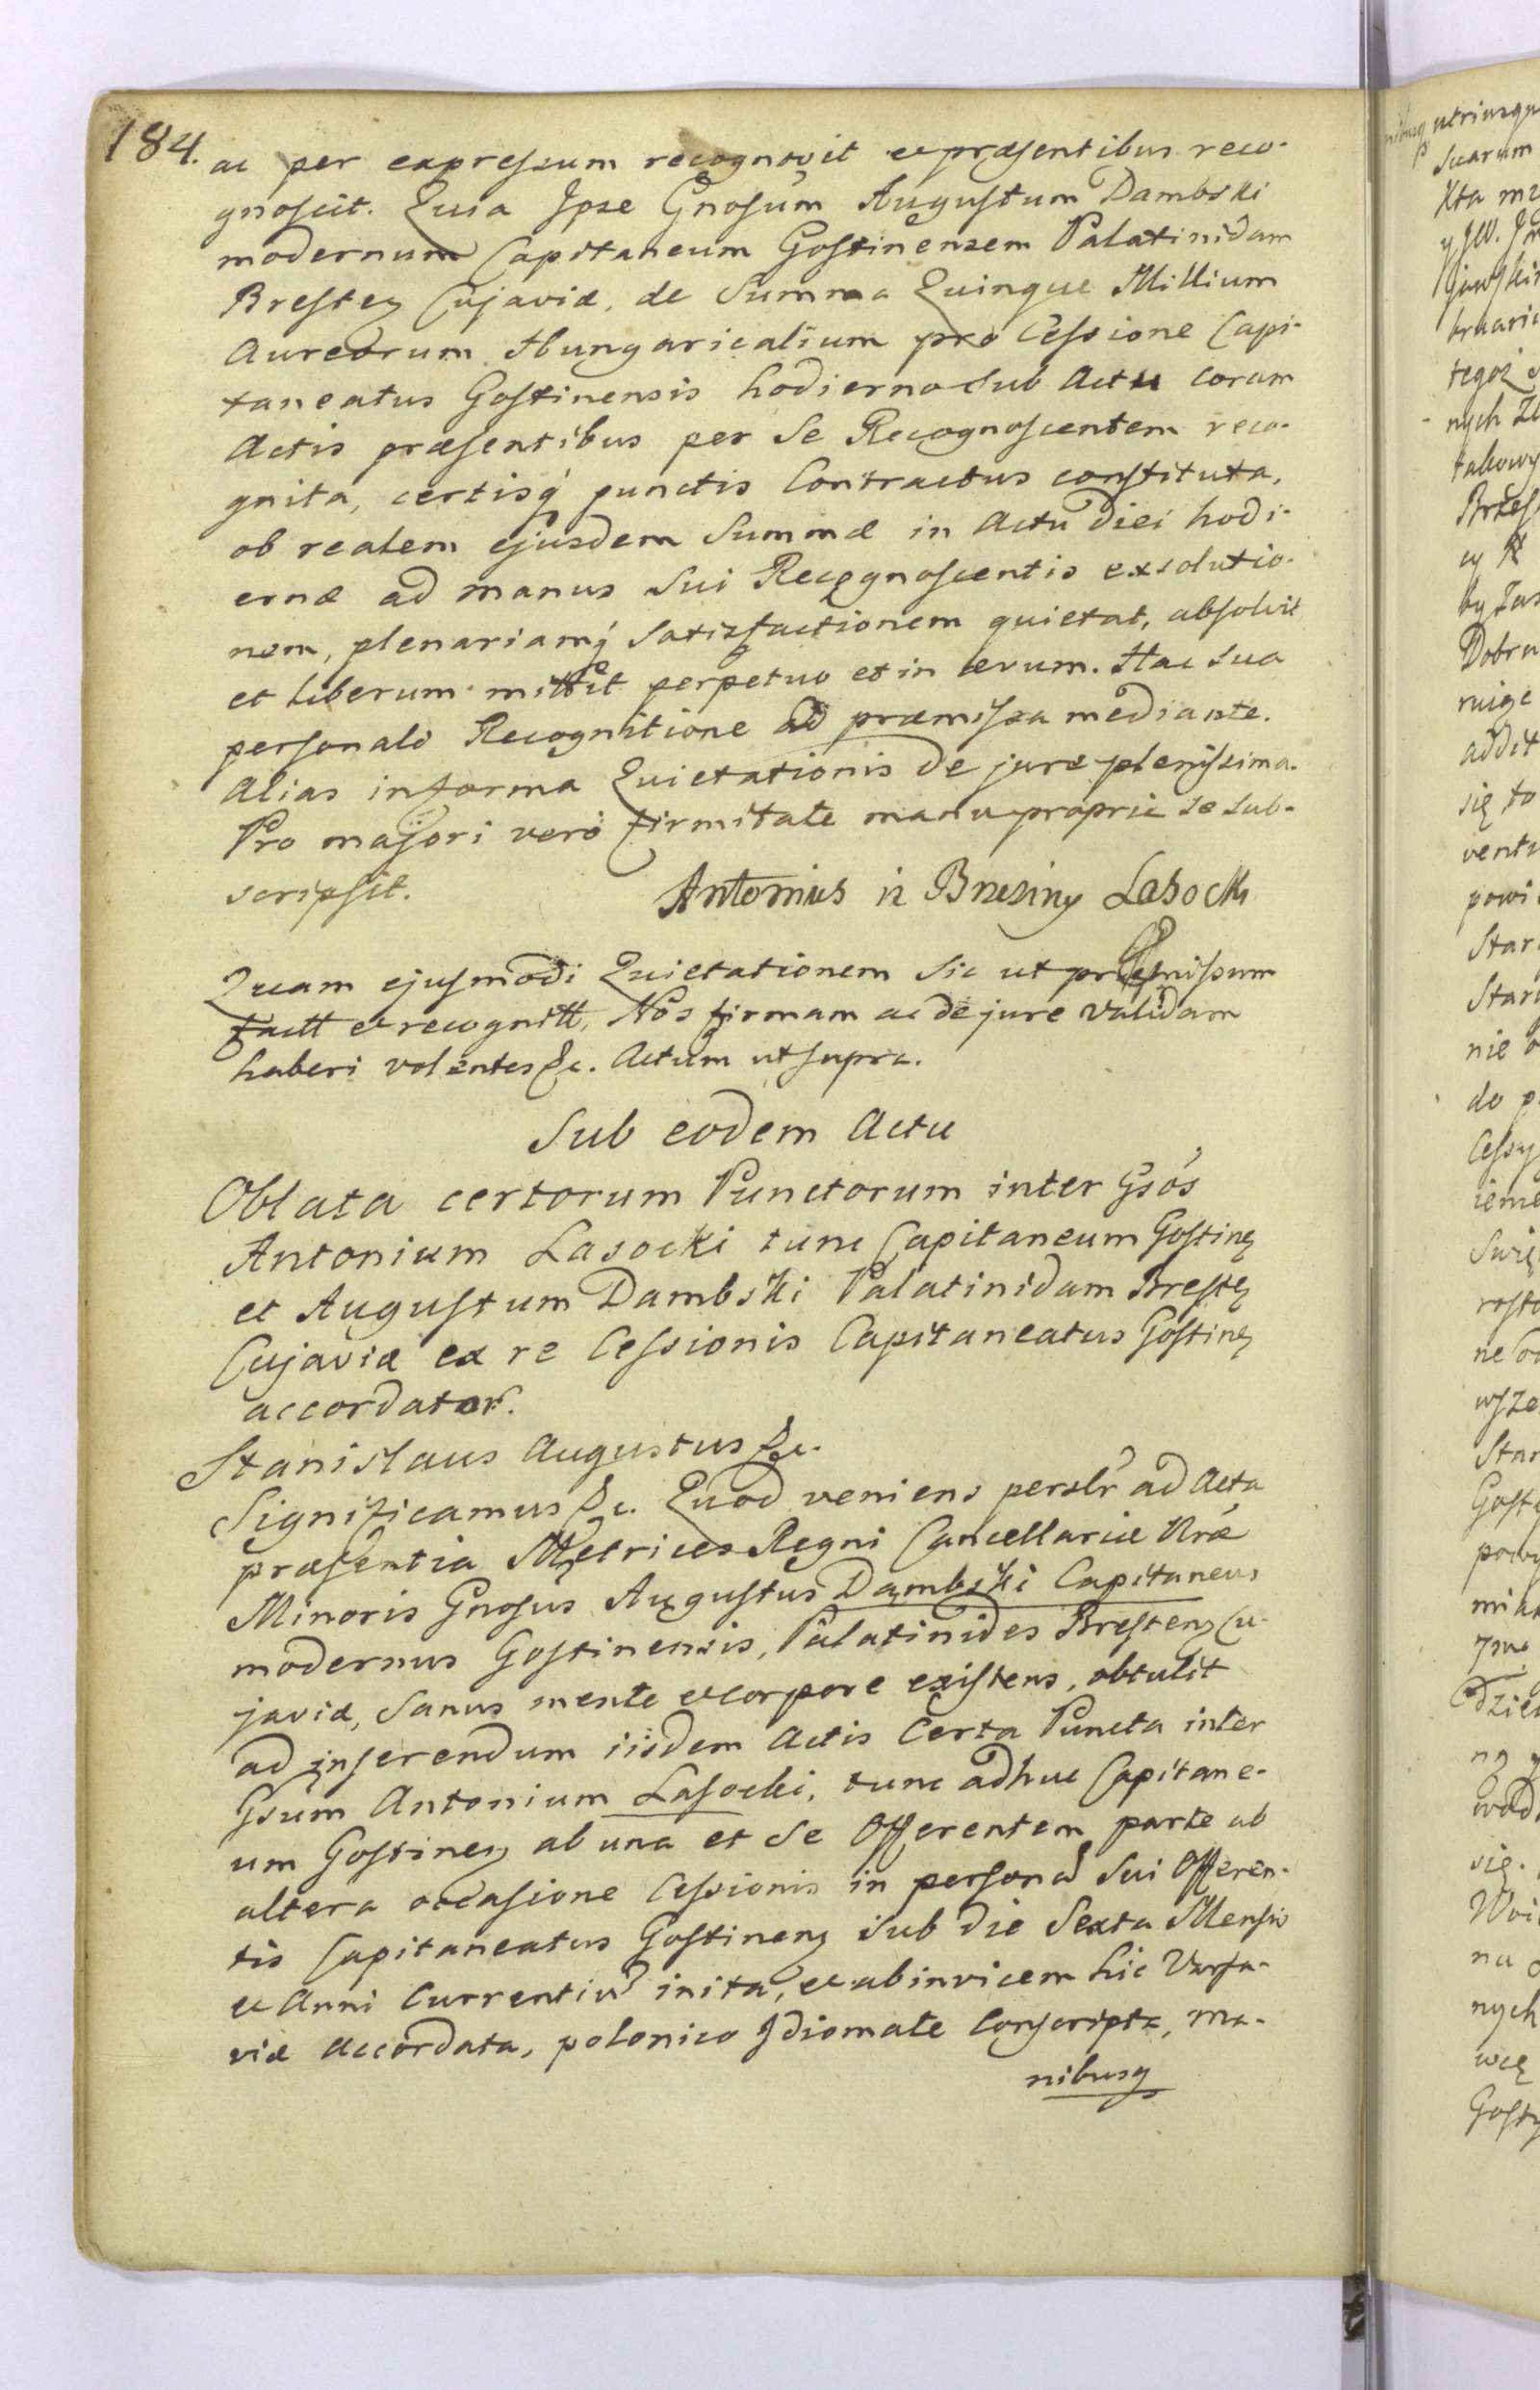 184.
ac per expressum recognovit et præsentibus reco-
gnoscit. Quia Ipse Gnosum Augustum Dambski
modernum Capitaneum Gostinensem Palatinidam
Bresten Cujaviæ, de Summa Quinque Millium
Aureorum Hungaricalium pro Cessione Capi-
taneatus Gostinensis hodierno sub Actu coram
Actis præsentibus per se Recognoscentem reco-
gnita, certisq́ punctis Contractus constituta,
ob realem ejusdem Summæ in Actu diei hodi-
ernæ ad manus sui Recognoscentis exsolutio-
nem, plenariamq́ satisfactionem quietat, absolvit
et liberum mittit perpetuo et in ævum. Hac sua
personali Recognitione ad præmissa mediante.
Alias in forma Quietationis de jure plenissima.
Pro majori verò firmitate manu propria se sub-
scripsit.
Antonius iz Brzeziny Lasocki
Quam ejusmodi Quietationem sic ut præmissum
factt et recognitt, Nos firmam ac de jure validam
haberi volentes &c. Actum ut supra.
Sub eodem Actu
Oblata certorum Punctorum inter Gsós
Antonium Lasocki tunc Capitaneum Gostinen
et Augustum Dambski Palatinidam Bresten
Cujaviæ ex re Cessionis Capitaneatus Gostinen
accordator.
Stanislaus Augustus &c.
Significamus &c. Quod veniens perslr ad Acta
præsentia Metrices Regni Cancellariæ Nræ
Minoris Gnosus Augustus Dambski Capitaneus
modernus Gostinensis, Palatinides Bresten Cu-
javiæ, Sanus mente et corpore existens, obtulit
ad inserendum iisdem Actis Certa Puncta inter
Gsum Antonium Lasocki, tunc adhuc Capitane-
um Gostinen ab una et se Offerentem parte ab
altera occasione Cessionis in personâ sui Offeren-
tis Capitaneatus Gostinen sub die Sexta Mensis
et Anni Currentium inita, et ab invicem hic Varsa-
viæ accordata, polonico Idiomate Conscripta, ma-
nibusq